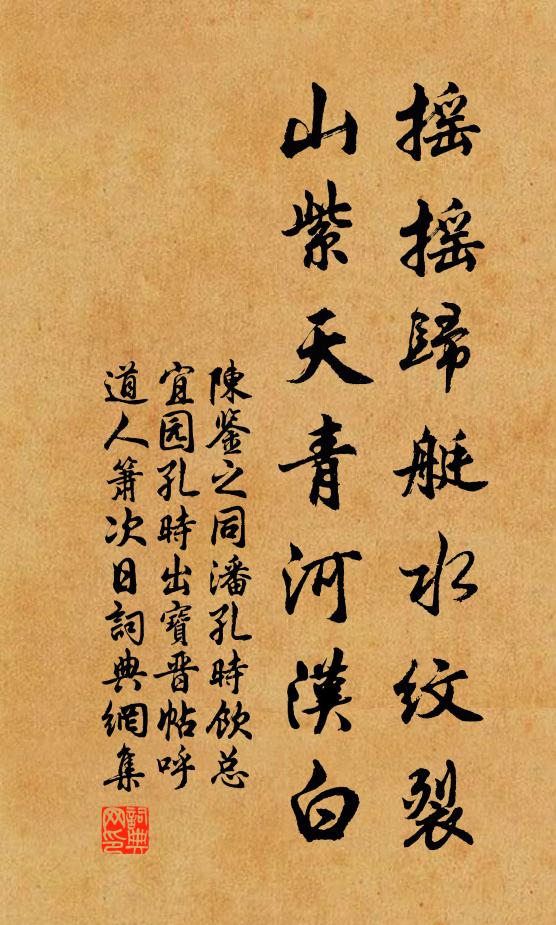 摇摇歸艇水纹裂
山紫天青河漢白
陳鉴之同潘孔時飲总
宜园孔時出寶晋帖呼
道人箫次日詞典網集
詞典网印